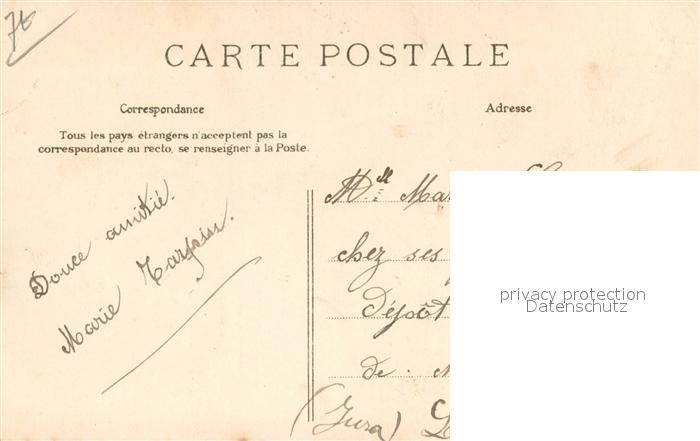 CARTE POSTALE
Correspondance
Adresse
Tous les pays étrangers n'acceptent pas la
correspondance au recto, se renseigner à la Poste.
Douce amitié.
Marie
Mlle
chez ses
Dépôt
de
(Jura)
privacy protection
Datenschutz